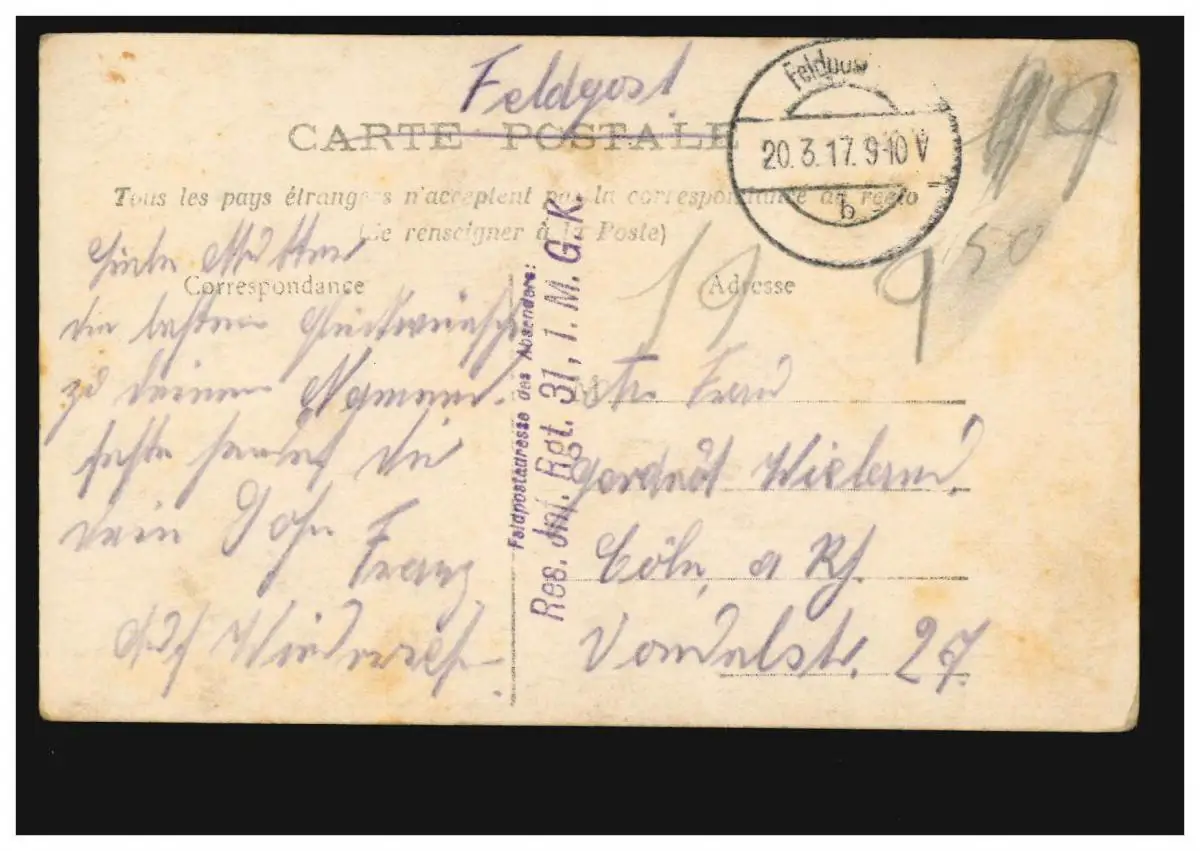 Feldpost.
CARTE POSTALE
Tous les pays étrangers n'acceptent pas la correspondance au recto
(Se renseigner à la Poste)
Correspondance
Adresse
Feldpost
20.3.17. 9-10 V
b
Liebe Mutter
die besten Glückwünsche
zu deinem Namens-
feste sendet die
dein Sohn
Franz
Auf Wiedersehn
Feldpostadresse des Absenders:
Res. Inf. Rgt. 31, 1. M. G. K.
Frau
Wieland,
Cöln, a Rh.
Vondelstr. 27.
19
50